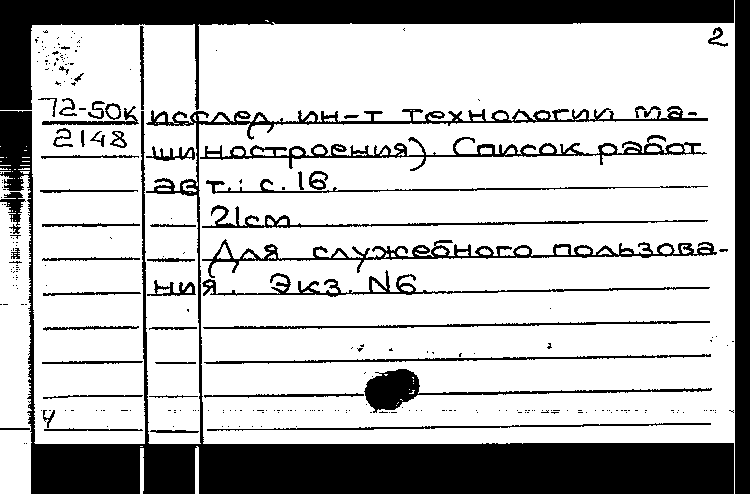 2
72-50к исслед. ин-т технологии ма-
2148 шиностроения). Список работ
авт.: с. 16.
21см.
Для служебного пользова-
ния. Экз. N6.
4